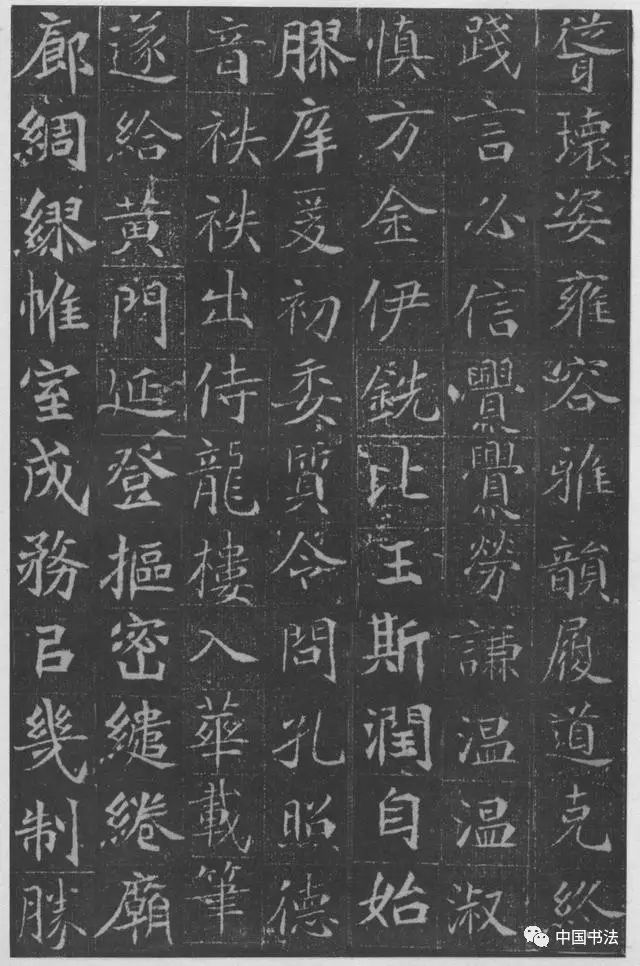 聳瓌姿雍容雅韻履道克終
踐言必信亹亹勞謙温温淑
慎方金伊銑比玉斯潤自始
膠庠爰初委質令問孔照德
音秩秩出侍龍樓入華載筆
遂給黃門延登樞密繾綣廟
廊綢繆帷室成務㠯幾制勝
中国书法